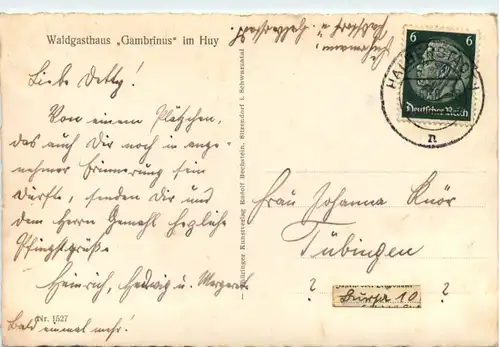 Waldgasthaus „Gambrinus“ im Huy
Liebe Detty!
Von einem Plätzchen,
das auch Dir noch in ange-
nehmer Erinnerung sein
dürfte, senden Dir und
dem Herrn Gemahl herzliche
Pfingstgrüße
Heinrich, Hedwig u. Margarete
Bald einmal mehr!
Nr. 1527
Thüringer Kunstverlag Rudolf Bechstein, Sitzendorf i. Schwarzatal
6 6
Deutsches Reich
HALBERSTADT
n
Frau Johanna Knör
Tübingen
? ?
10